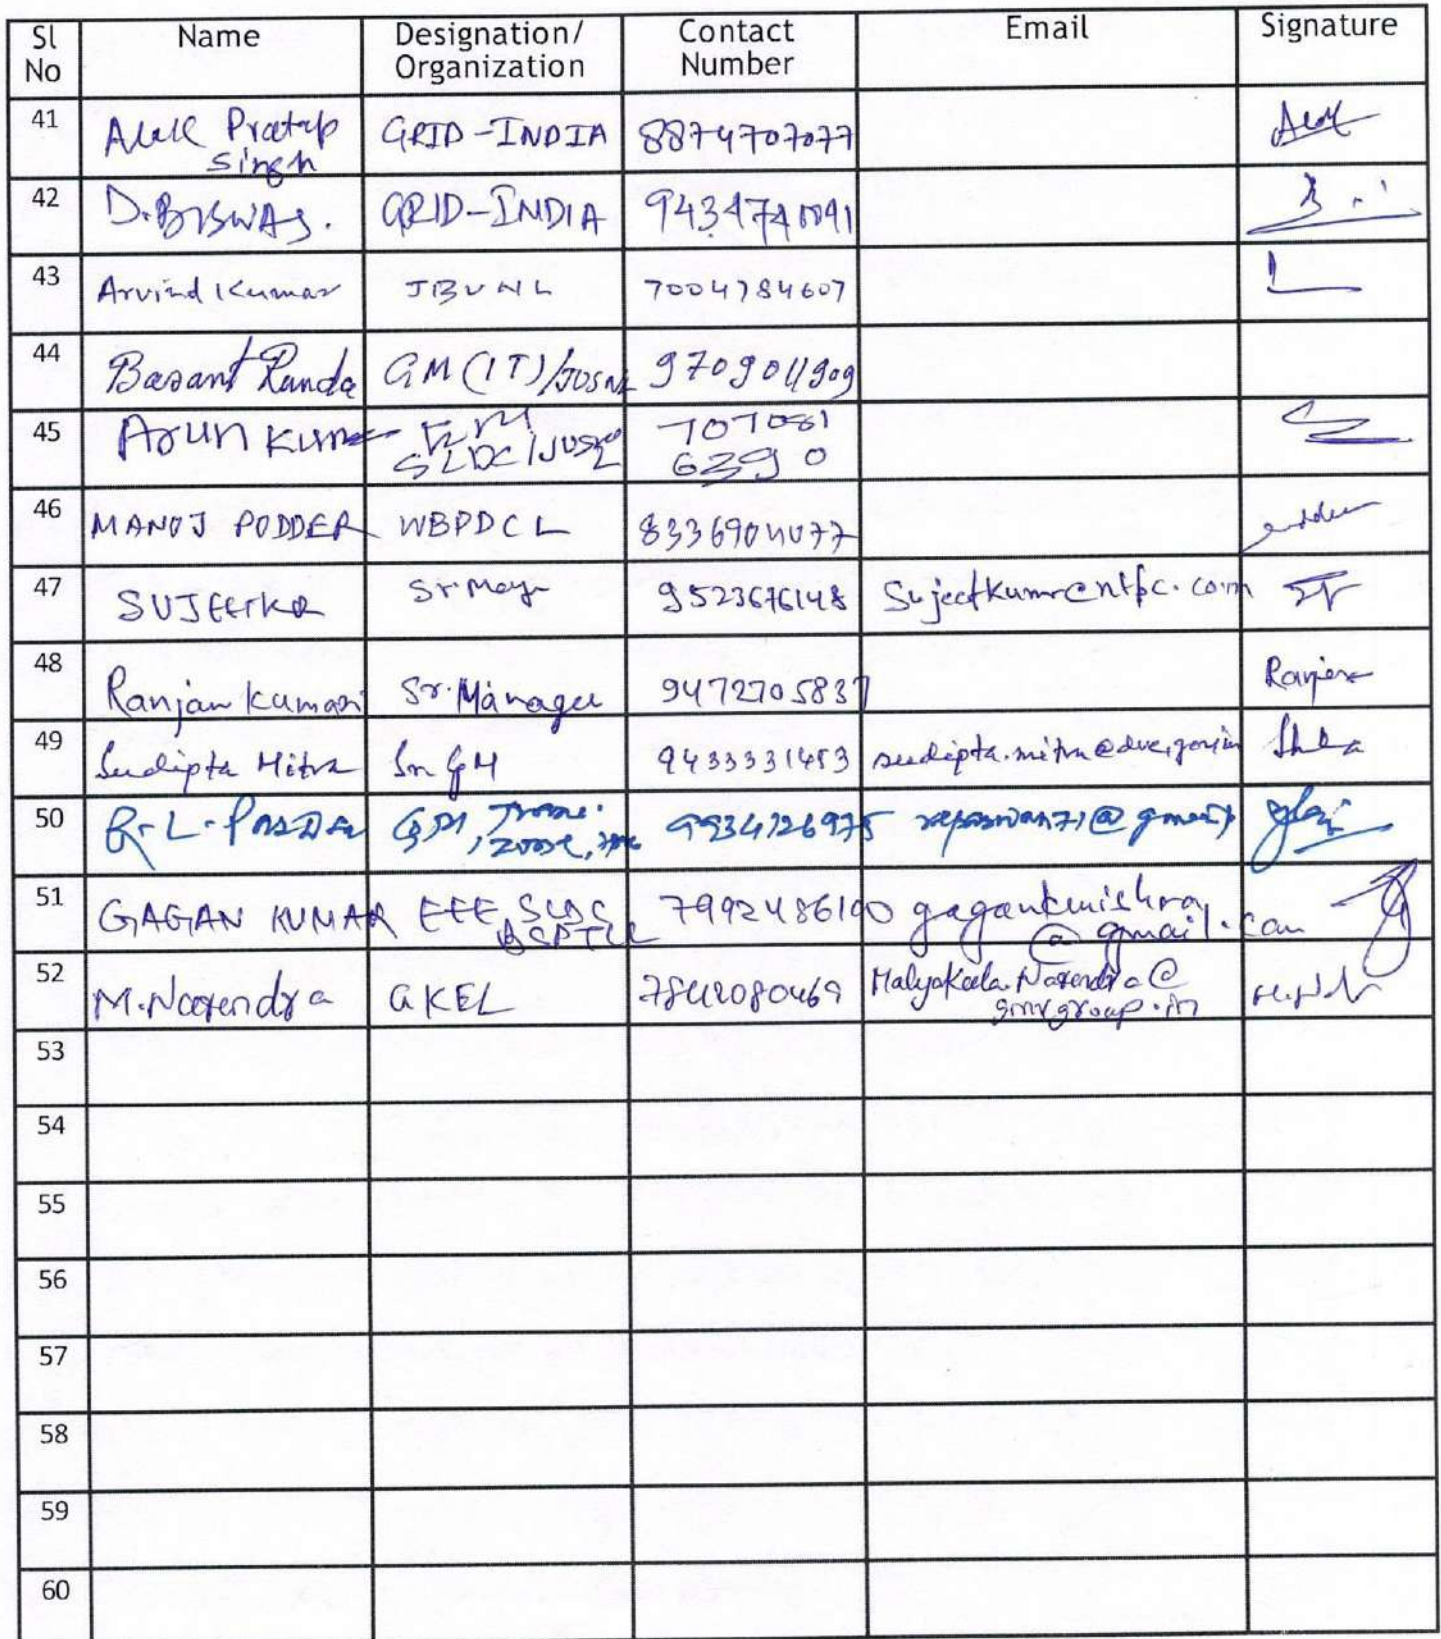 Sl No Name Designation/ Organization Contact Number Email Signature
41 Alok Pratap Singh GRID-INDIA 8874707077
42 D. BISWAS. GRID-INDIA 9434741091
43 Arvind Kumar JBVNL 7004784607
44 Basant Runda GM (IT)/JUSNL 9709011909
45 Arun Kumar SLDC/JUSNL 707081 6390
46 MANOJ PODDER WBPDCL 8336904077
47 SUJEETKR Sr. Mngr 9523676148 Sujeetkumr@ntpc.com
48 Ranjan Kumar Sr. Manager 9472705837 Ranjan
49 Sudipta Mitra Sr GM 9433331453 sudipta.mitra@dvc.gov.in
50 9934126975
51 GAGAN KUMAR EEE, SLDC BSPTCL 7992486100 gagankmishra @gmail.com
52 M. Narendra GKEL 7842080469 Malyakala.Narendra@ gmrgroup.in
53
54
55
56
57
58
59
60